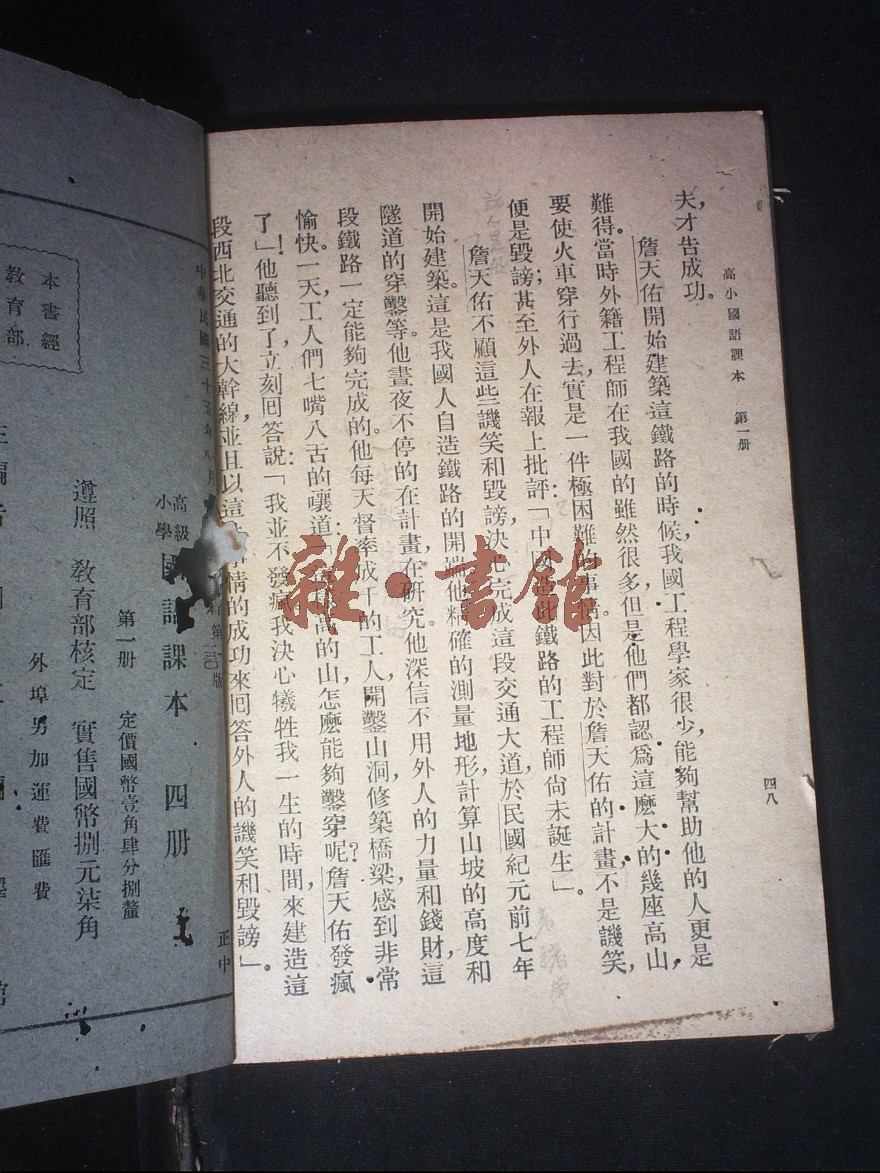 高小國語課本 第一册
四八
夫，才告成功。
詹天佑開始建築這鐵路的時候，我國工程學家很少，能夠幫助他的人更是
難得。當時外籍工程師在我國的雖然很多，但是他們都認爲這麽大的幾座高山，
要使火車穿行過去，實是一件極困難的事情。因此對於詹天佑的計畫，不是譏笑，
便是毀謗；甚至外人在報上批評「中國造此鐵路的工程師尚未誕生」。
詹天佑不顧這些譏笑和毀謗，決心完成這段交通大道，於民國紀元前七年
開始建築。這是我國人自造鐵路的開端。他精確的測量地形，計算山坡的高度和
隧道的穿鑿等。他晝夜不停的在計畫，在研究。他深信不用外人的力量和錢財，這
段鐵路一定能夠完成的。他每天督率成千的工人，開鑿山洞，修築橋梁，感到非常
愉快。一天，工人們七嘴八舌的嚷道：「高的山，怎麽能夠鑿穿呢？詹天佑發瘋
了！」他聽到了，立刻囘答說：「我並不發瘋，我決心犧牲我一生的時間，來建造這
段西北交通的大幹線，並且以這事情的成功來囘答外人的譏笑和毀謗」。
中華民國三十五年八月
版
正中
高級
小學
國語課本 四册
第一册 定價國幣壹角肆分捌釐
外埠另加運費匯費
遵照 教育部核定 實售國幣捌元柒角
本書經
教育部
雜·書館